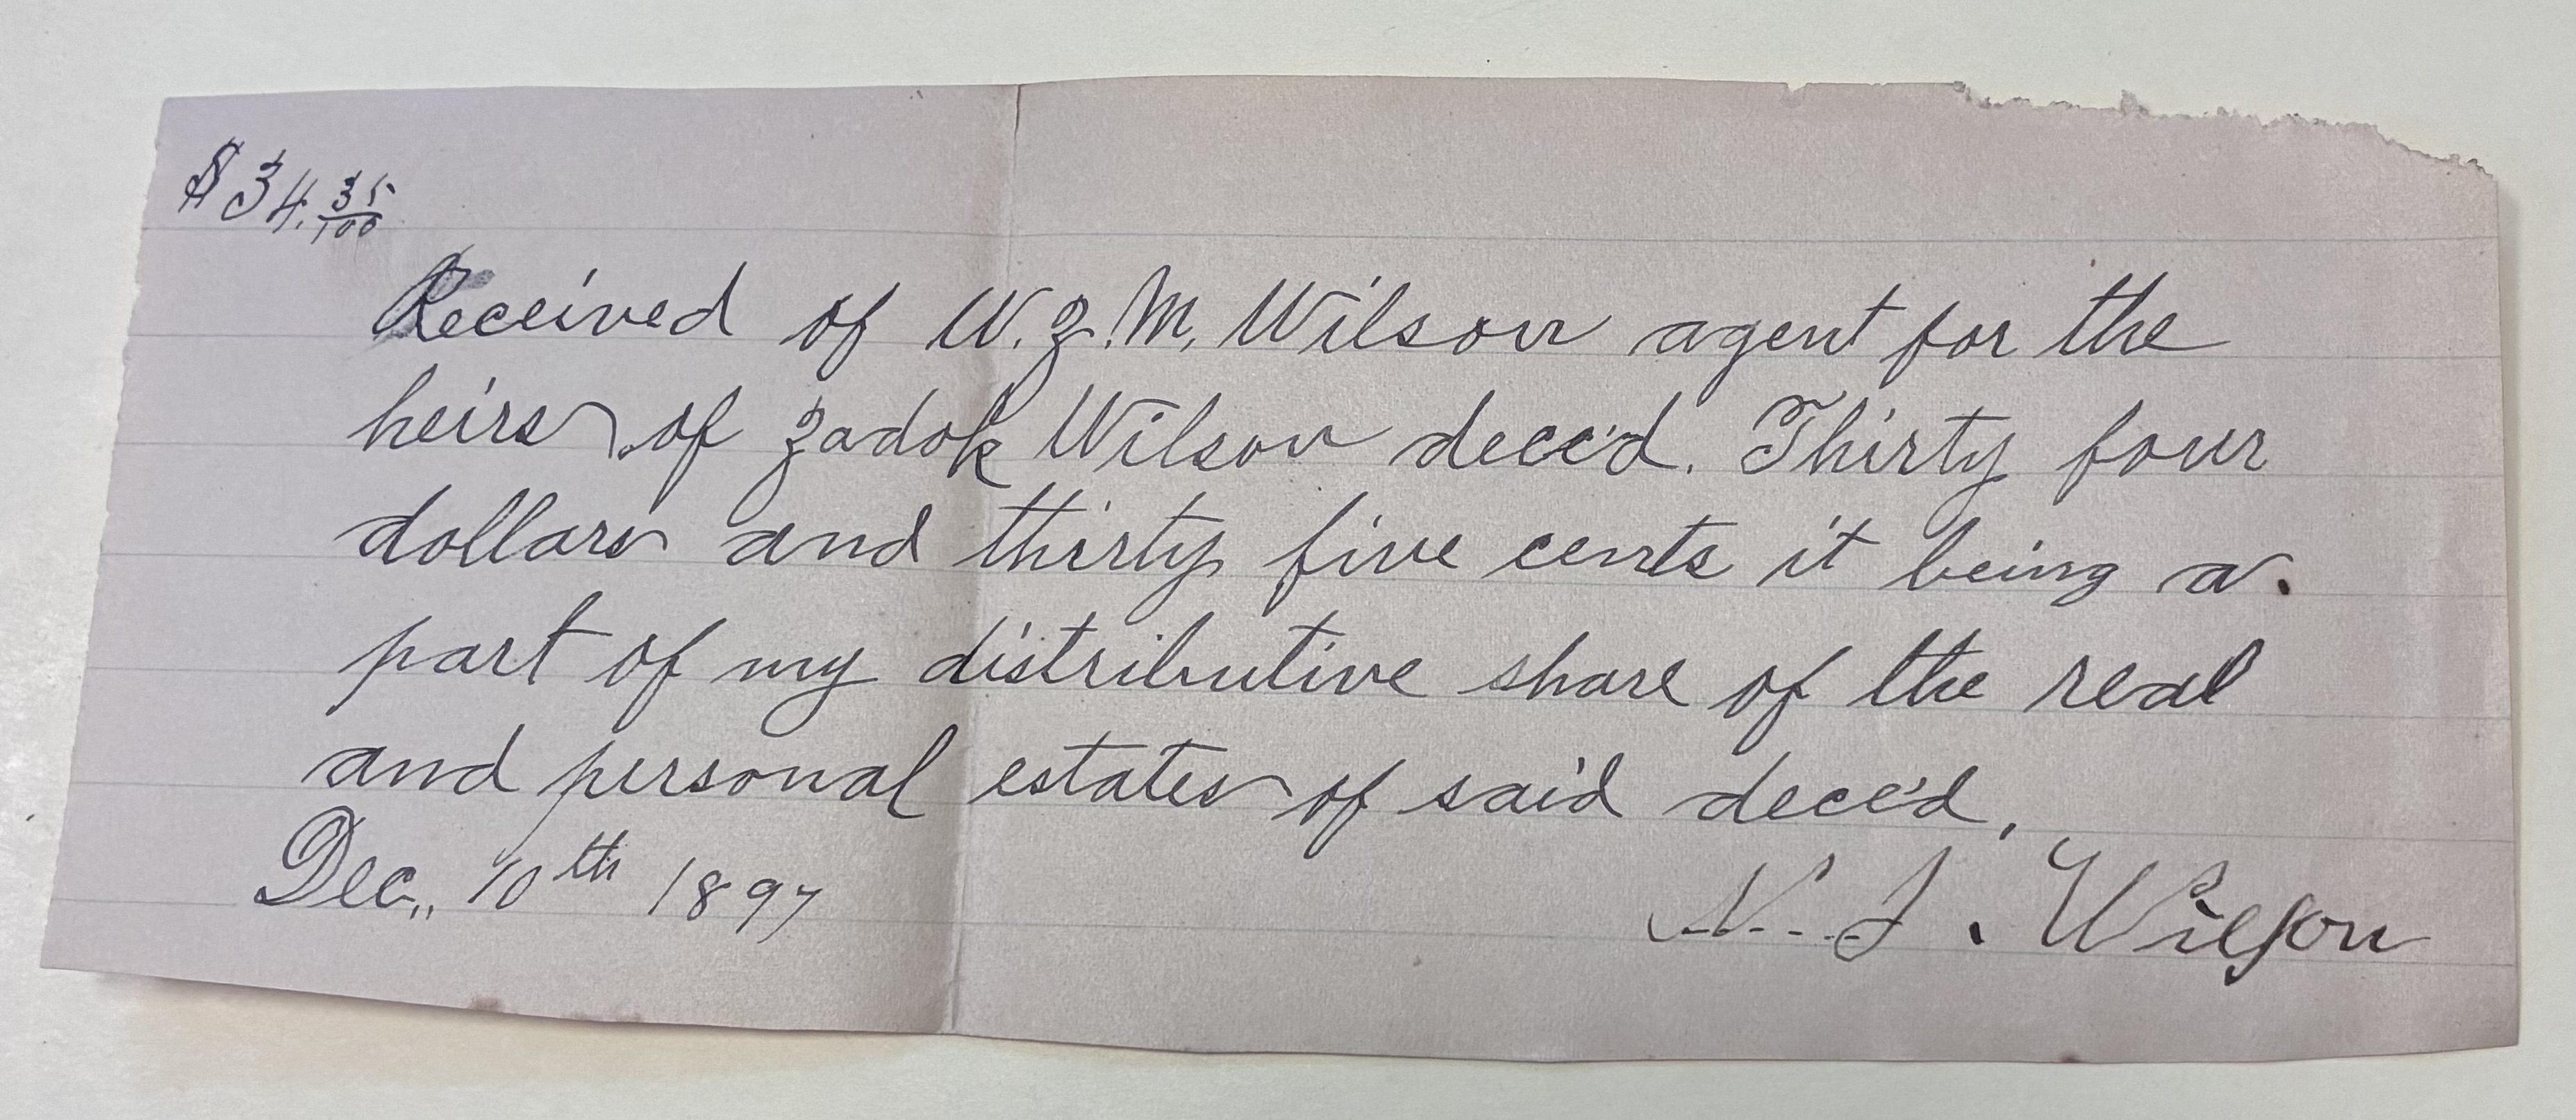 $34.35/100
Received of W. Z. M. Wilson agent for the
heirs of Zadok Wilson dece'd. Thirty four
dollars and thirty five cents it being a
part of my distributive share of the real
and personal estates of said dece'd,
Dec,, 10th 1897
Wilson